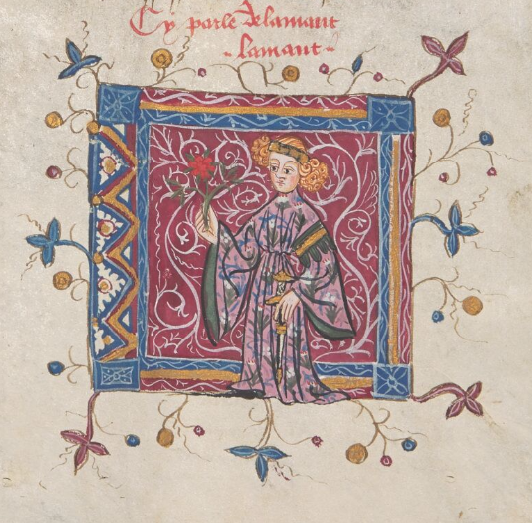 Cy parle de lamant
lamant